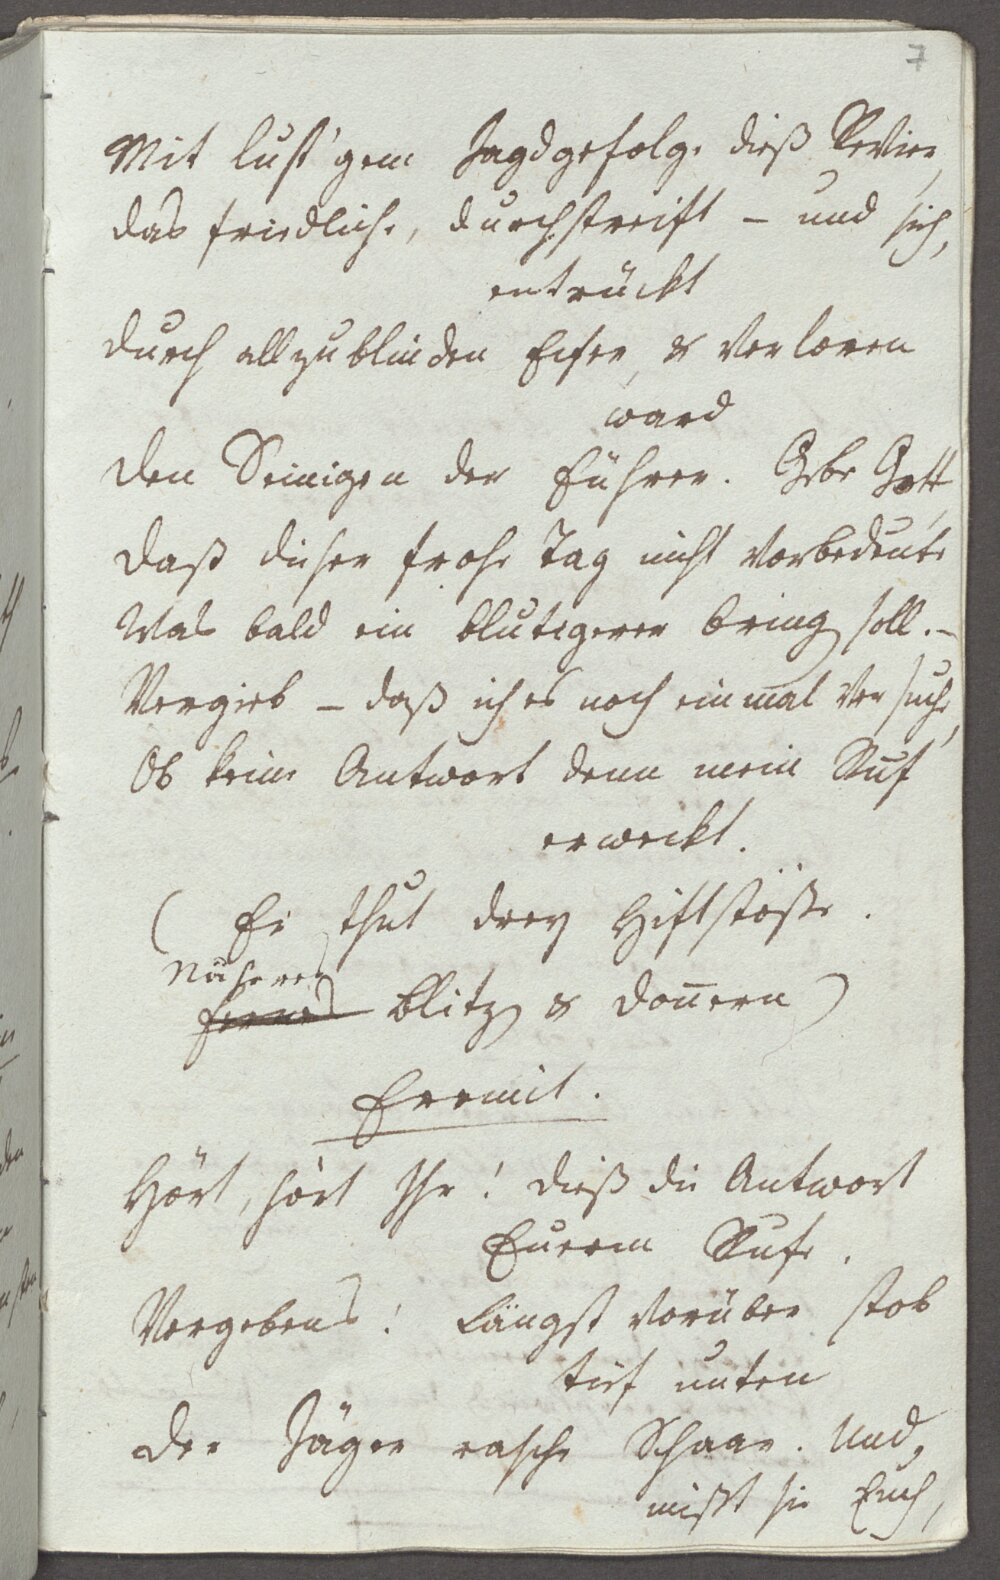 7
Mit lust'gem Jagdgefolge dieß Revier,
das friedliche, durchstreift – und sich,
entrückt
durch allzublinden Eifer, & verloren
ward
den Seinigen der Führer. Gebe Gott,
daß dieser frohe Tag nicht vorbedeute
Was bald ein blutigerer bring soll. –
Vergieb – daß ich es noch einmal versuche,
Ob keine Antwort denn mein Ruf
erweckt.
(Er thut drey Hiftstöße.
Näheres
fernes Blitz & Doñern)
Eremit.
Hört, hört Ihr! dieß die Antwort
Euerm Rufe.
Vergebens! Längst vorüber stob
tief unten
der Jäger rasche Schaar. Und,
mißt sie Euch,